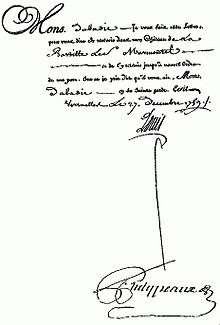 Mons. Dabadie je vous fais cette Lettre
pour vous dire de recevoir dans mon Château de La
Bastille Le Sr
et de l'y retenir jusqu'à nouvel Ordre
de ma part. Sur ce je prie Dieu qu'il vous ait, Mons.
Dabadie en Sa Sainte garde. Ecrit
Versailles Le 27. Decembre 1759.
Louis
Phelypeaux